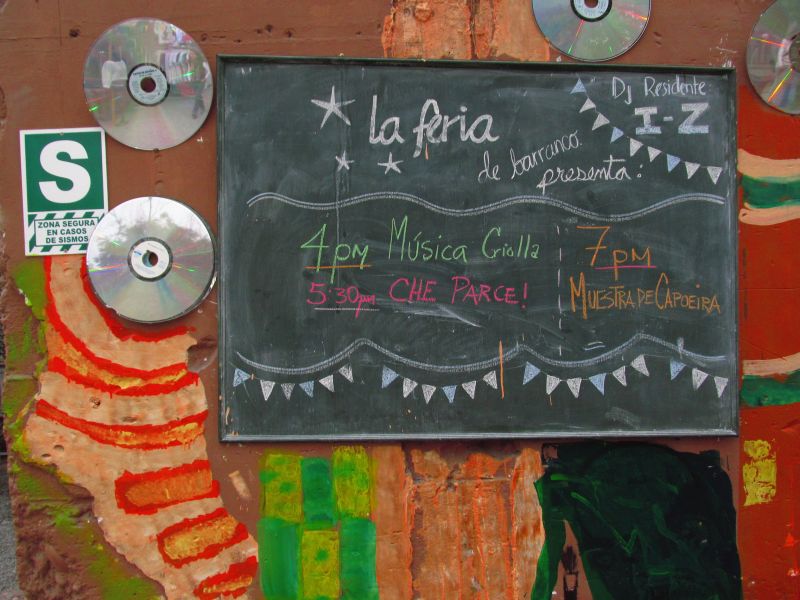 la feria
de barranco
presenta:
Dj Residente
I-Z
4pm Música Criolla
5:30pm CHE PARCE!
7pm
MUESTRA DE CAPOEIRA
S
ZONA SEGURA
EN CASOS
DE SISMOS